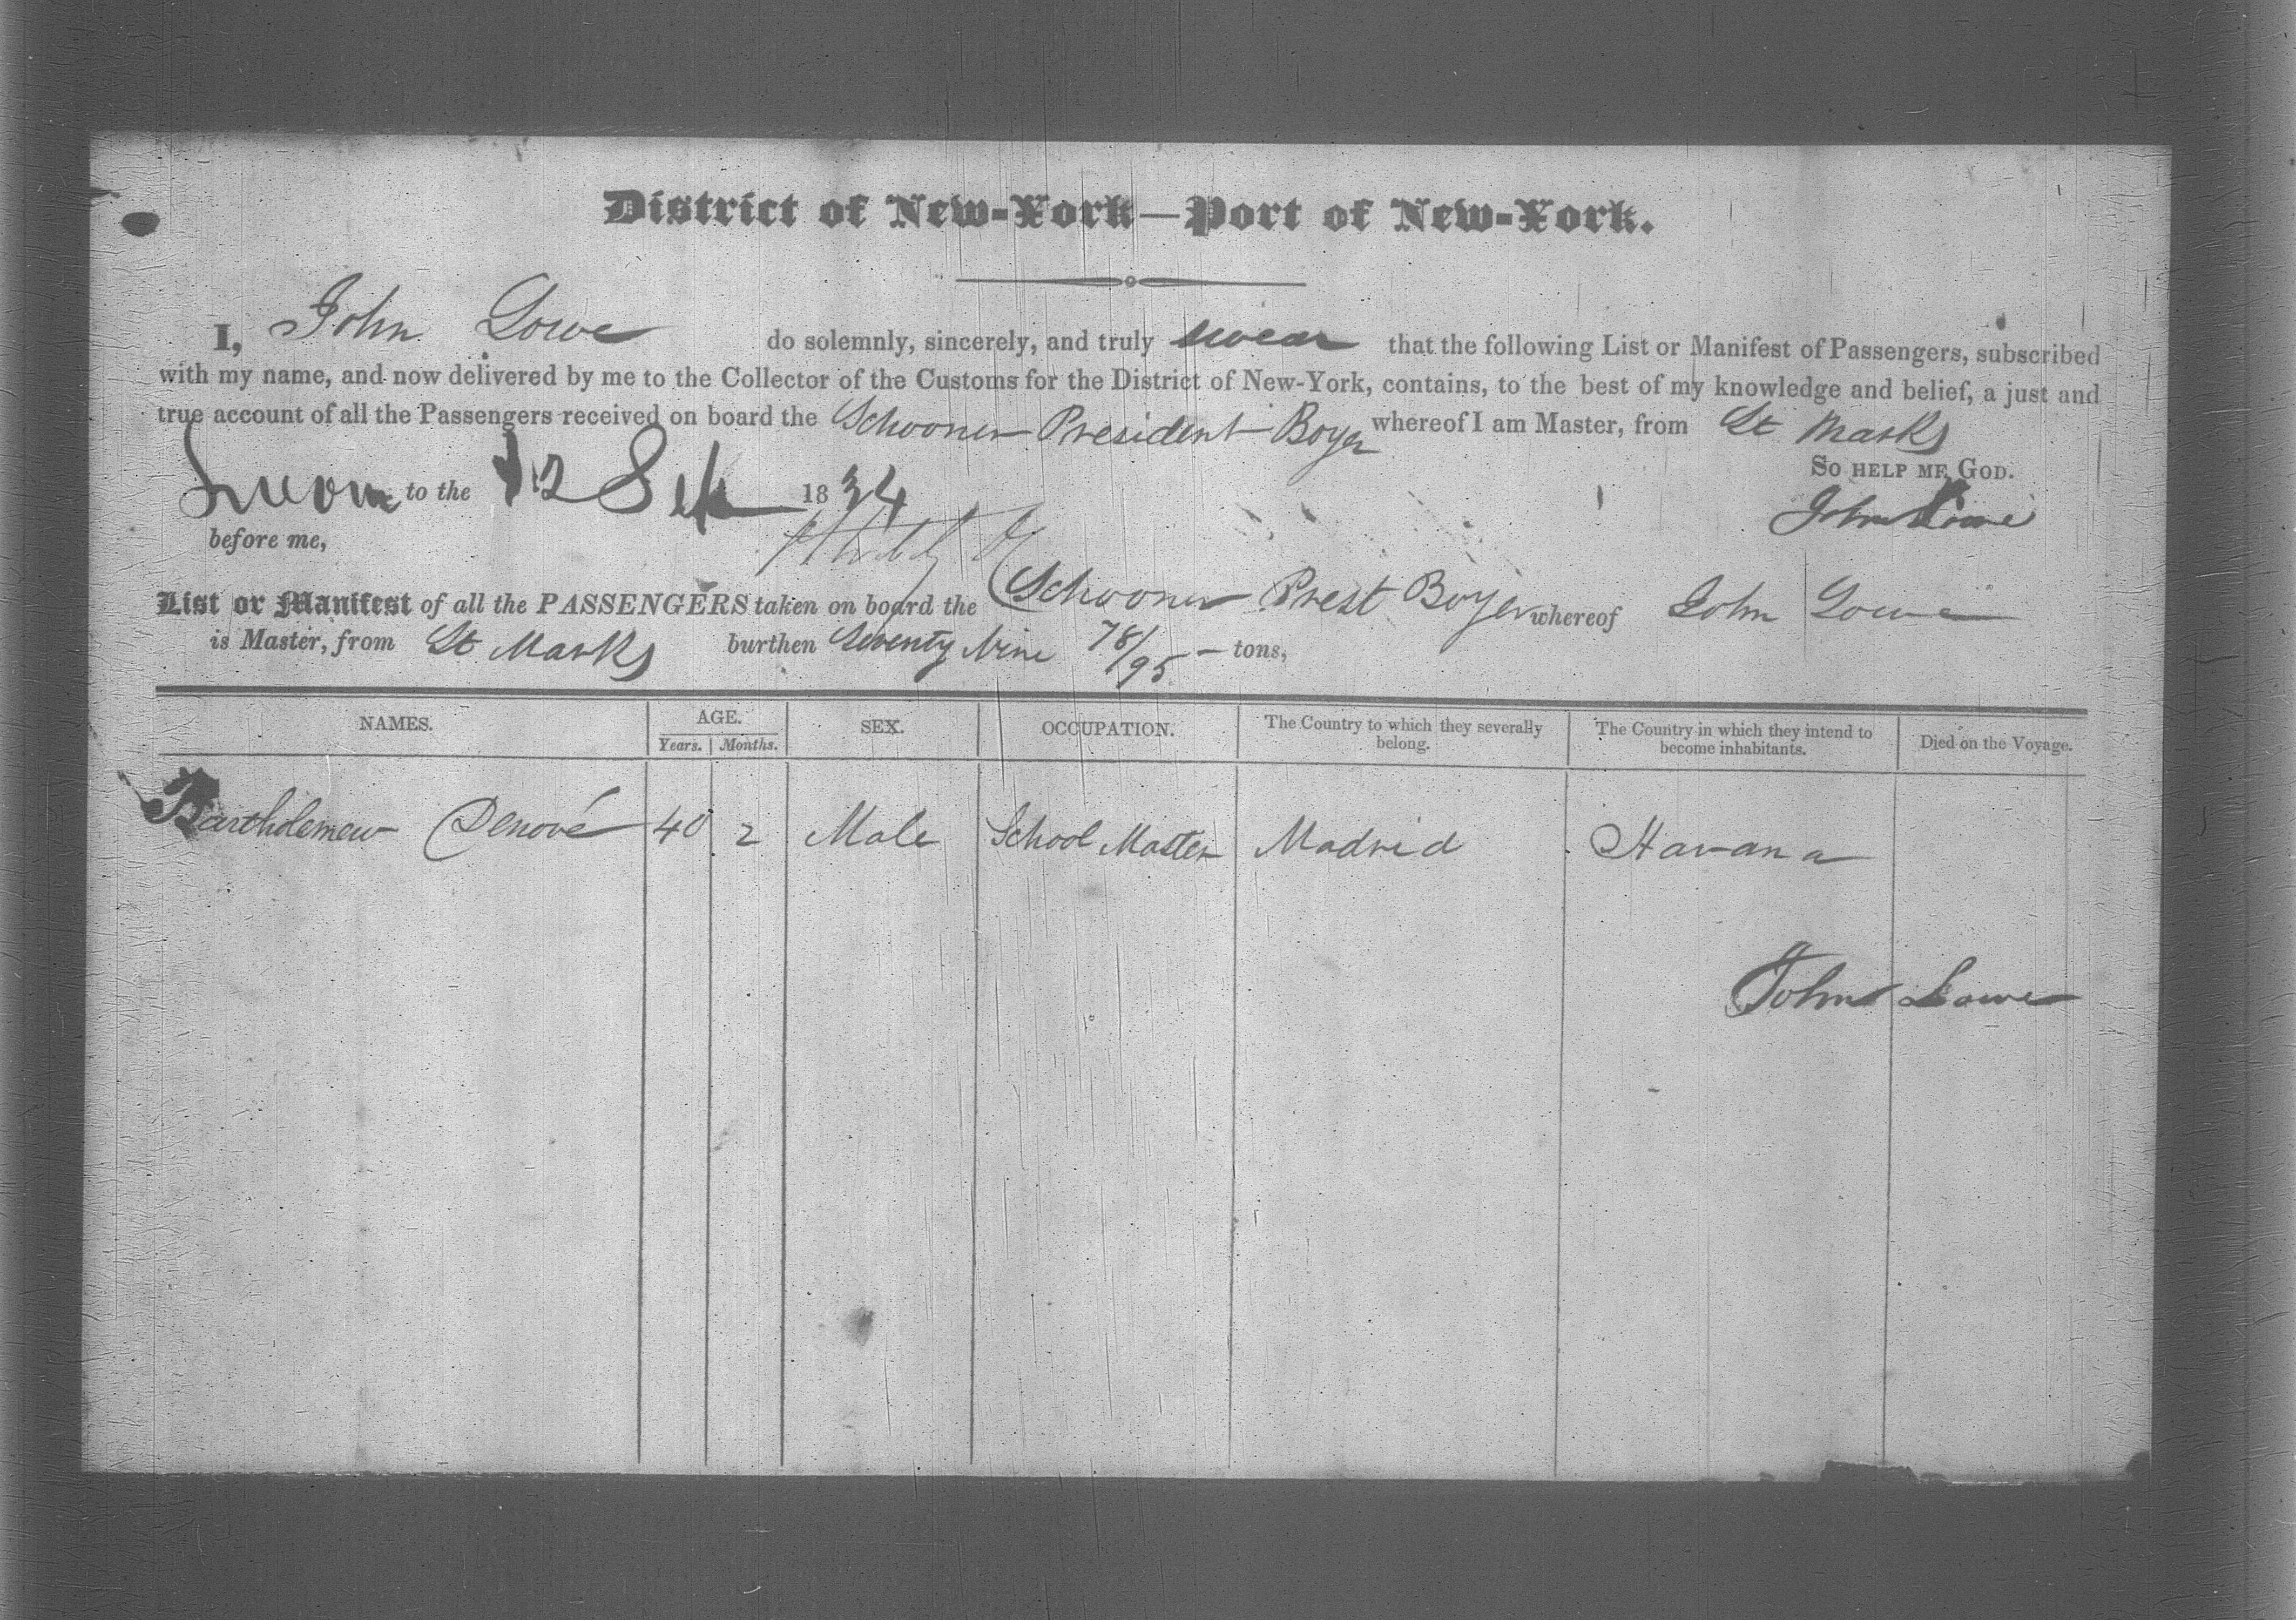 District of New-York—Port of New-York.
I, John Lowe do solemnly, sincerely, and truly swear that the following List or Manifest of Passengers, subscribed
with my name, and now delivered by me to the Collector of the Customs for the District of New-York, contains, to the best of my knowledge and belief, a just and
true account of all the Passengers received on board the Schooner President Boyer whereof I am Master, from St Marks
So help me God.
Sworn to the 12 Sep 1834
John Lowe
before me,
List or Manifest of all the PASSENGERS taken on board the Schooner Prest Boyer whereof John Lowe
is Master, from St Marks burthen Seventy Nine 78/95 - tons,
NAMES. AGE. SEX. OCCUPATION. The Country to which they severally belong. The Country in which they intend to become inhabitants. Died on the Voyage.
Years. Months.
Bartholemew Denové 40 2 Male School Master Madrid Havana
John Lowe